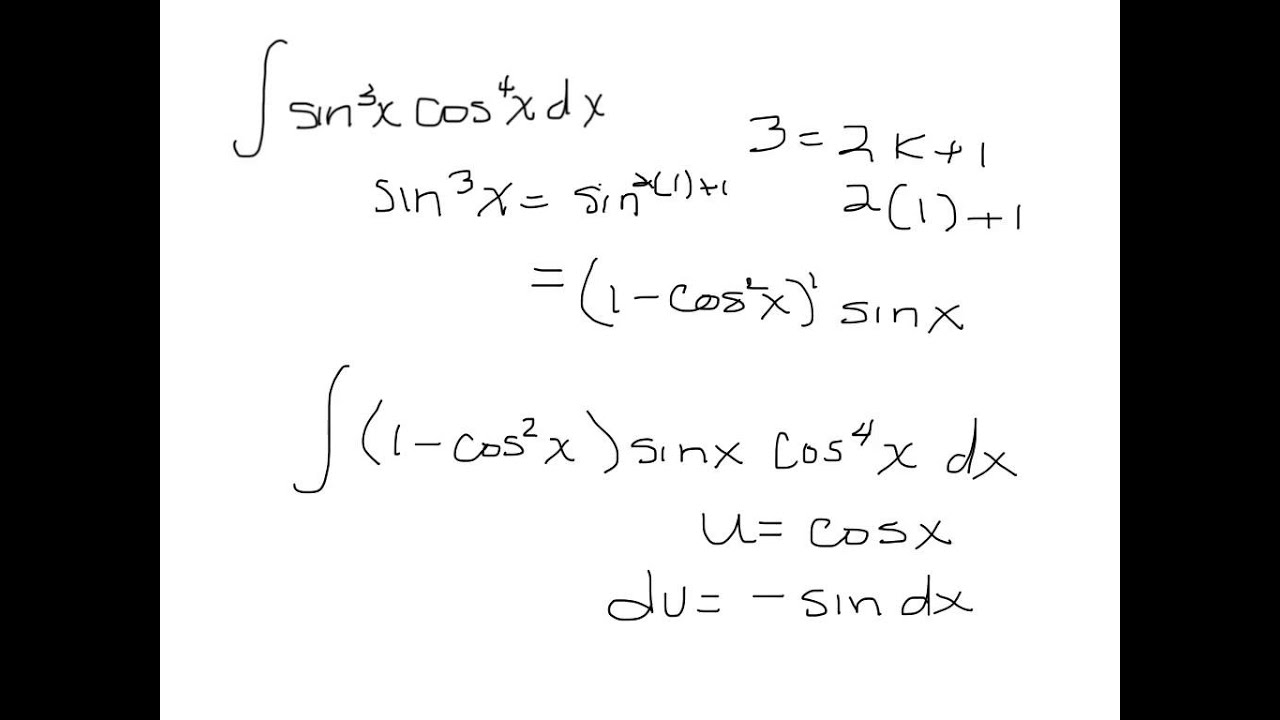 ∫ sin³x cos⁴x dx
3 = 2k+1
sin³x = sin²⁽¹⁾⁺¹
2(1)+1
= (1-cos²x)¹ sinx
∫ (1-cos²x) sinx cos⁴x dx
u = cosx
du = - sin dx